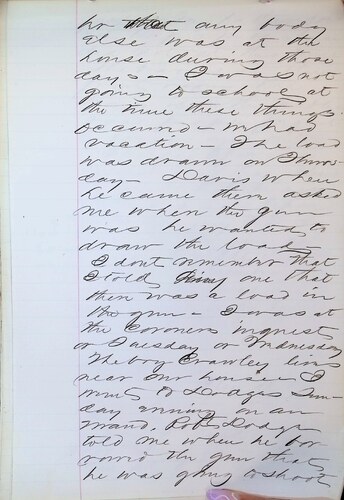 any body
else was at the
house during those
days - I was not
going to school at
the time these things
occurred - we had
vacation - The load
was drawn on Thurs-
day - Davis when
he came then asked
me when the gun
was he wanted to
draw the load -
I dont remember that
I told any one that
then was a load in
the gun - I was at
the Coroners inquest
on Tuesday or Wednesday
The boy Crawley lives
near our house - I
went to Lodges Sun-
day evening on an
errand. Robt Lodge
told me when he bor
rowed the gun that
he was going to shoot